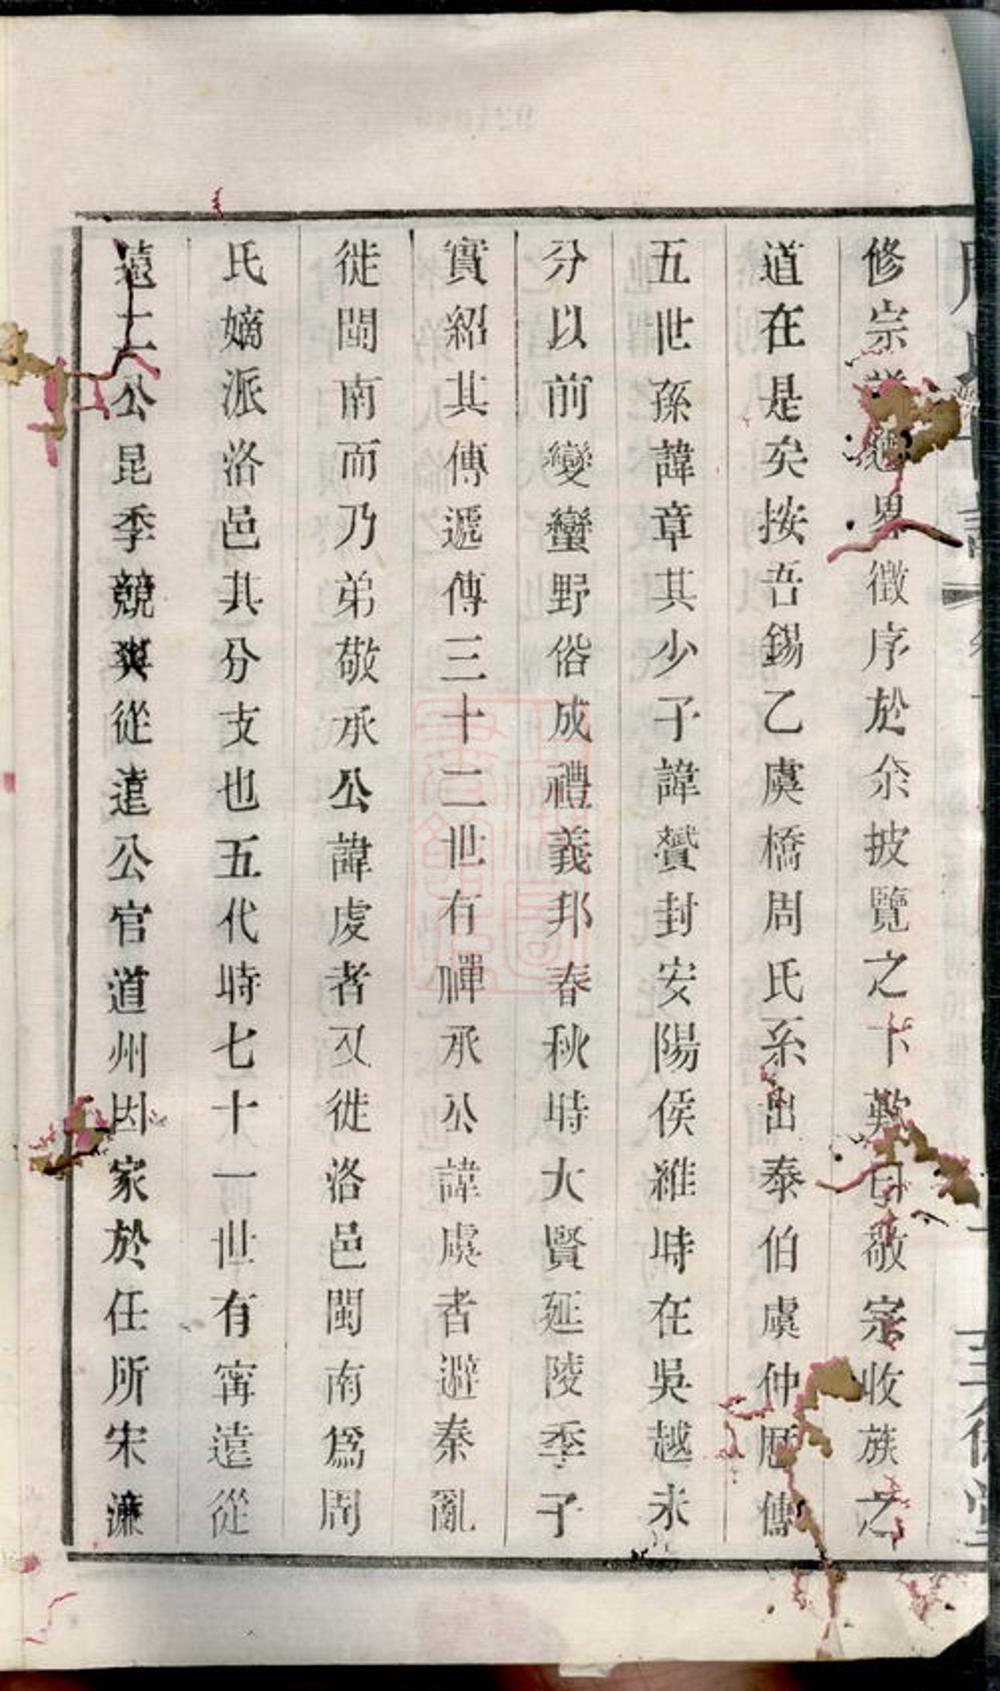 修宗譜 界徵序於余披覽之下歎曰敬宗收族之
道在是矣按吾錫乙虞橋周氏系出泰伯虞仲歷傳
五世孫諱章其少子諱贇封安陽侯維時在吳越未
分以前變蠻野俗成禮義邦春秋時大賢延陵季子
實紹其傳遞傳三十二世有禪承公諱虞者避秦亂
徙閩南而乃弟敬承公諱虔者又徙洛邑閩南爲周
氏嫡派洛邑其分支也五代時七十一世有寗遠從
遠二公昆季競爽從遠公官道州因家於任所宋濂